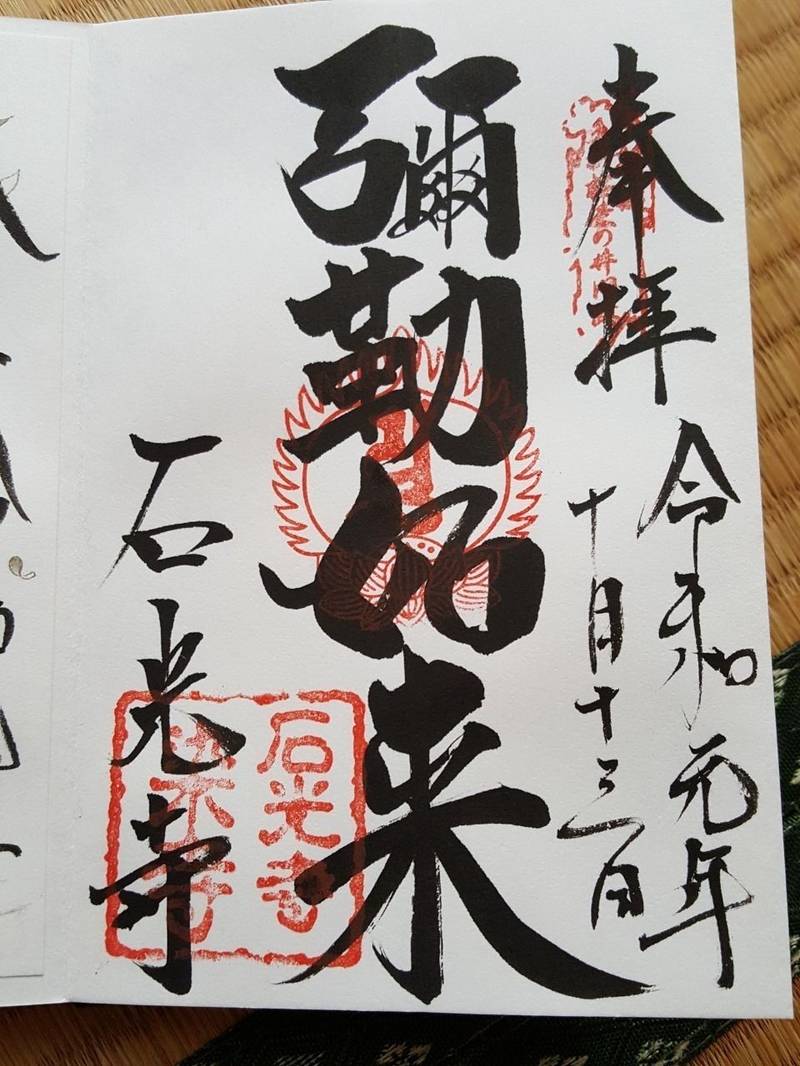 奉拝
令和元年
十月十三日
彌勒如来
石光寺
石光寺
染寺